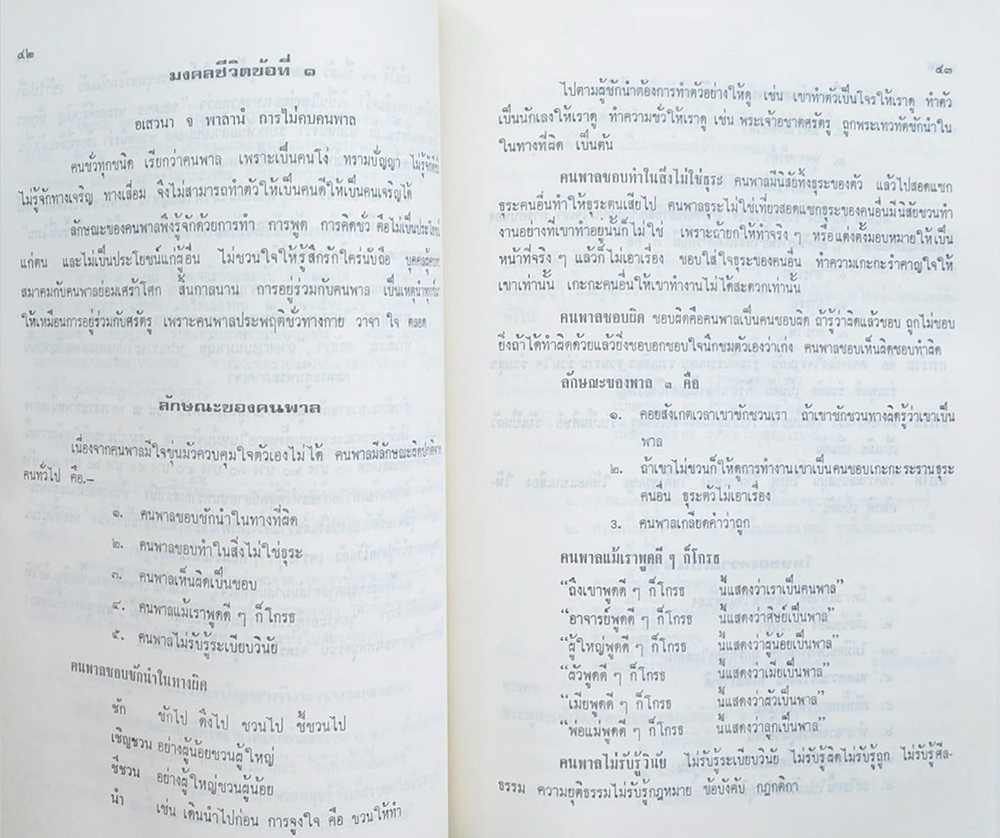 ๔๒
มงคลชีวิตข้อที่ ๑
อเสวนา จ พาลานํ การไม่คบคนพาล
คนชั่วทุกชนิด เรียกว่าคนพาล เพราะเป็นคนโง่ ทรามปัญญา
ไม่รู้จักทางเจริญ ทางเสื่อม จึงไม่สามารถทำตัวให้เป็นคนดีให้เป็นคนเจริญได้
ลักษณะของคนพาลพึงรู้จักด้วยการทำ การพูด การคิดชั่ว คือไม่เป็นประโยชน์
แก่ตน และไม่เป็นประโยชน์แก่ผู้อื่น ไม่ชวนใจให้รู้สึกรักใคร่นับถือ
สมาคมกับคนพาลย่อมเศร้าโศก สิ้นกาลนาน การอยู่ร่วมกับคนพาล
ให้เหมือนการอยู่ร่วมกับศรัตรู เพราะคนพาลประพฤติชั่วทางกาย วาจา ใจ ตลอด
ลักษณะของคนพาล
เนื่องจากคนพาลมีใจขุ่นมัวควบคุมใจตัวเองไม่ได้ คนพาลมีลักษณะผิดปกติจาก
คนทั่วไป คือ.–
๑. คนพาลชอบชักนำในทางที่ผิด
๒. คนพาลชอบทำในสิ่งไม่ใช่ธุระ
๓. คนพาลเห็นผิดเป็นชอบ
๔. คนพาลแม้เราพูดดี ๆ ก็โกรธ
๕. คนพาลไม่รับรู้ระเบียบวินัย
คนพาลชอบชักนำในทางผิด
ชัก ชักไป ดึงไป ชวนไป ชี้ชวนไป
เชิญชวน อย่างผู้น้อยชวนผู้ใหญ่
ชี้ชวน อย่างผู้ใหญ่ชวนผู้น้อย
นำ เช่น เดินนำไปก่อน การจูงใจ คือ ชวนให้ทำ
๔๓
ไปตามผู้ชักนำต้องการทำตัวอย่างให้ดู เช่น เขาทำตัวเป็นโจรให้เราดู ทำตัว
เป็นนักเลงให้เราดู ทำความชั่วให้เราดู เช่น พระเจ้าอชาตศรัตรู ถูกพระเทวทัตชักนำใน
ในทางที่ผิด เป็นต้น
คนพาลชอบทำในสิ่งไม่ใช่ธุระ คนพาลมีนิสัยทิ้งธุระของตัว แล้วไปสอดแซก
ธุระคนอื่นทำให้ธุระตนเสียไป คนพาลธุระไม่ใช่เที่ยวสอดแซกธุระของคนอื่นมีนิสัยชวนทำ
งานอย่างที่เขาทำอยู่นั้นก็ไม่ใช่ เพราะถ้ายกให้ทำจริง ๆ หรือแต่งตั้งมอบหมายให้เป็น
หน้าที่จริง ๆ แล้วก็ไม่เอาเรื่อง ชอบใส่ใจธุระของคนอื่น ทำความเกะกะรำคาญใจให้
เขาเท่านั้น เกะกะคนอื่นให้เขาทำงานไม่ได้สะดวกเท่านั้น
คนพาลชอบผิด ชอบผิดคือคนพาลเป็นคนชอบผิด ถ้ารู้ว่าผิดแล้วชอบ ถูกไม่ชอบ
ยิ่งถ้าได้ทำผิดด้วยแล้วยิ่งชอบอกชอบใจนึกชมตัวเองว่าเก่ง คนพาลชอบเห็นผิดชอบทำผิด
ลักษณะของพาล ๓ คือ
๑. คอยสังเกตเวลาเขาชักชวนเรา ถ้าเขาชักชวนทางผิดรู้ว่าเขาเป็น
พาล
๒. ถ้าเขาไม่ชวนก็ให้ดูการทำงานเขาเป็นคนชอบเกะกะระรานธุระ
คนอื่น ธุระตัวไม่เอาเรื่อง
3. คนพาลเกลียดคำว่าถูก
คนพาลแม้เราพูดดี ๆ ก็โกรธ
“ถึงเขาพูดดี ๆ ก็โกรธ นี้แสดงว่าเราเป็นคนพาล”
“อาจารย์พูดดี ๆ ก็โกรธ นี้แสดงว่าศิษย์เป็นพาล”
“ผู้ใหญ่พูดดี ๆ ก็โกรธ นี้แสดงว่าผู้น้อยเป็นพาล”
“ผัวพูดดี ๆ ก็โกรธ นี้แสดงว่าเมียเป็นพาล”
“เมียพูดดี ๆ ก็โกรธ นี้แสดงว่าผัวเป็นพาล”
“พ่อแม่พูดดี ๆ ก็โกรธ นี้แสดงว่าลูกเป็นพาล”
คนพาลไม่รับรู้วินัย ไม่รับรู้ระเบียบวินัย ไม่รับรู้ผิดไม่รับรู้ถูก ไม่รับรู้ศีล-
ธรรม ความยุติธรรมไม่รับรู้กฎหมาย ข้อบังคับ กฎกติกา